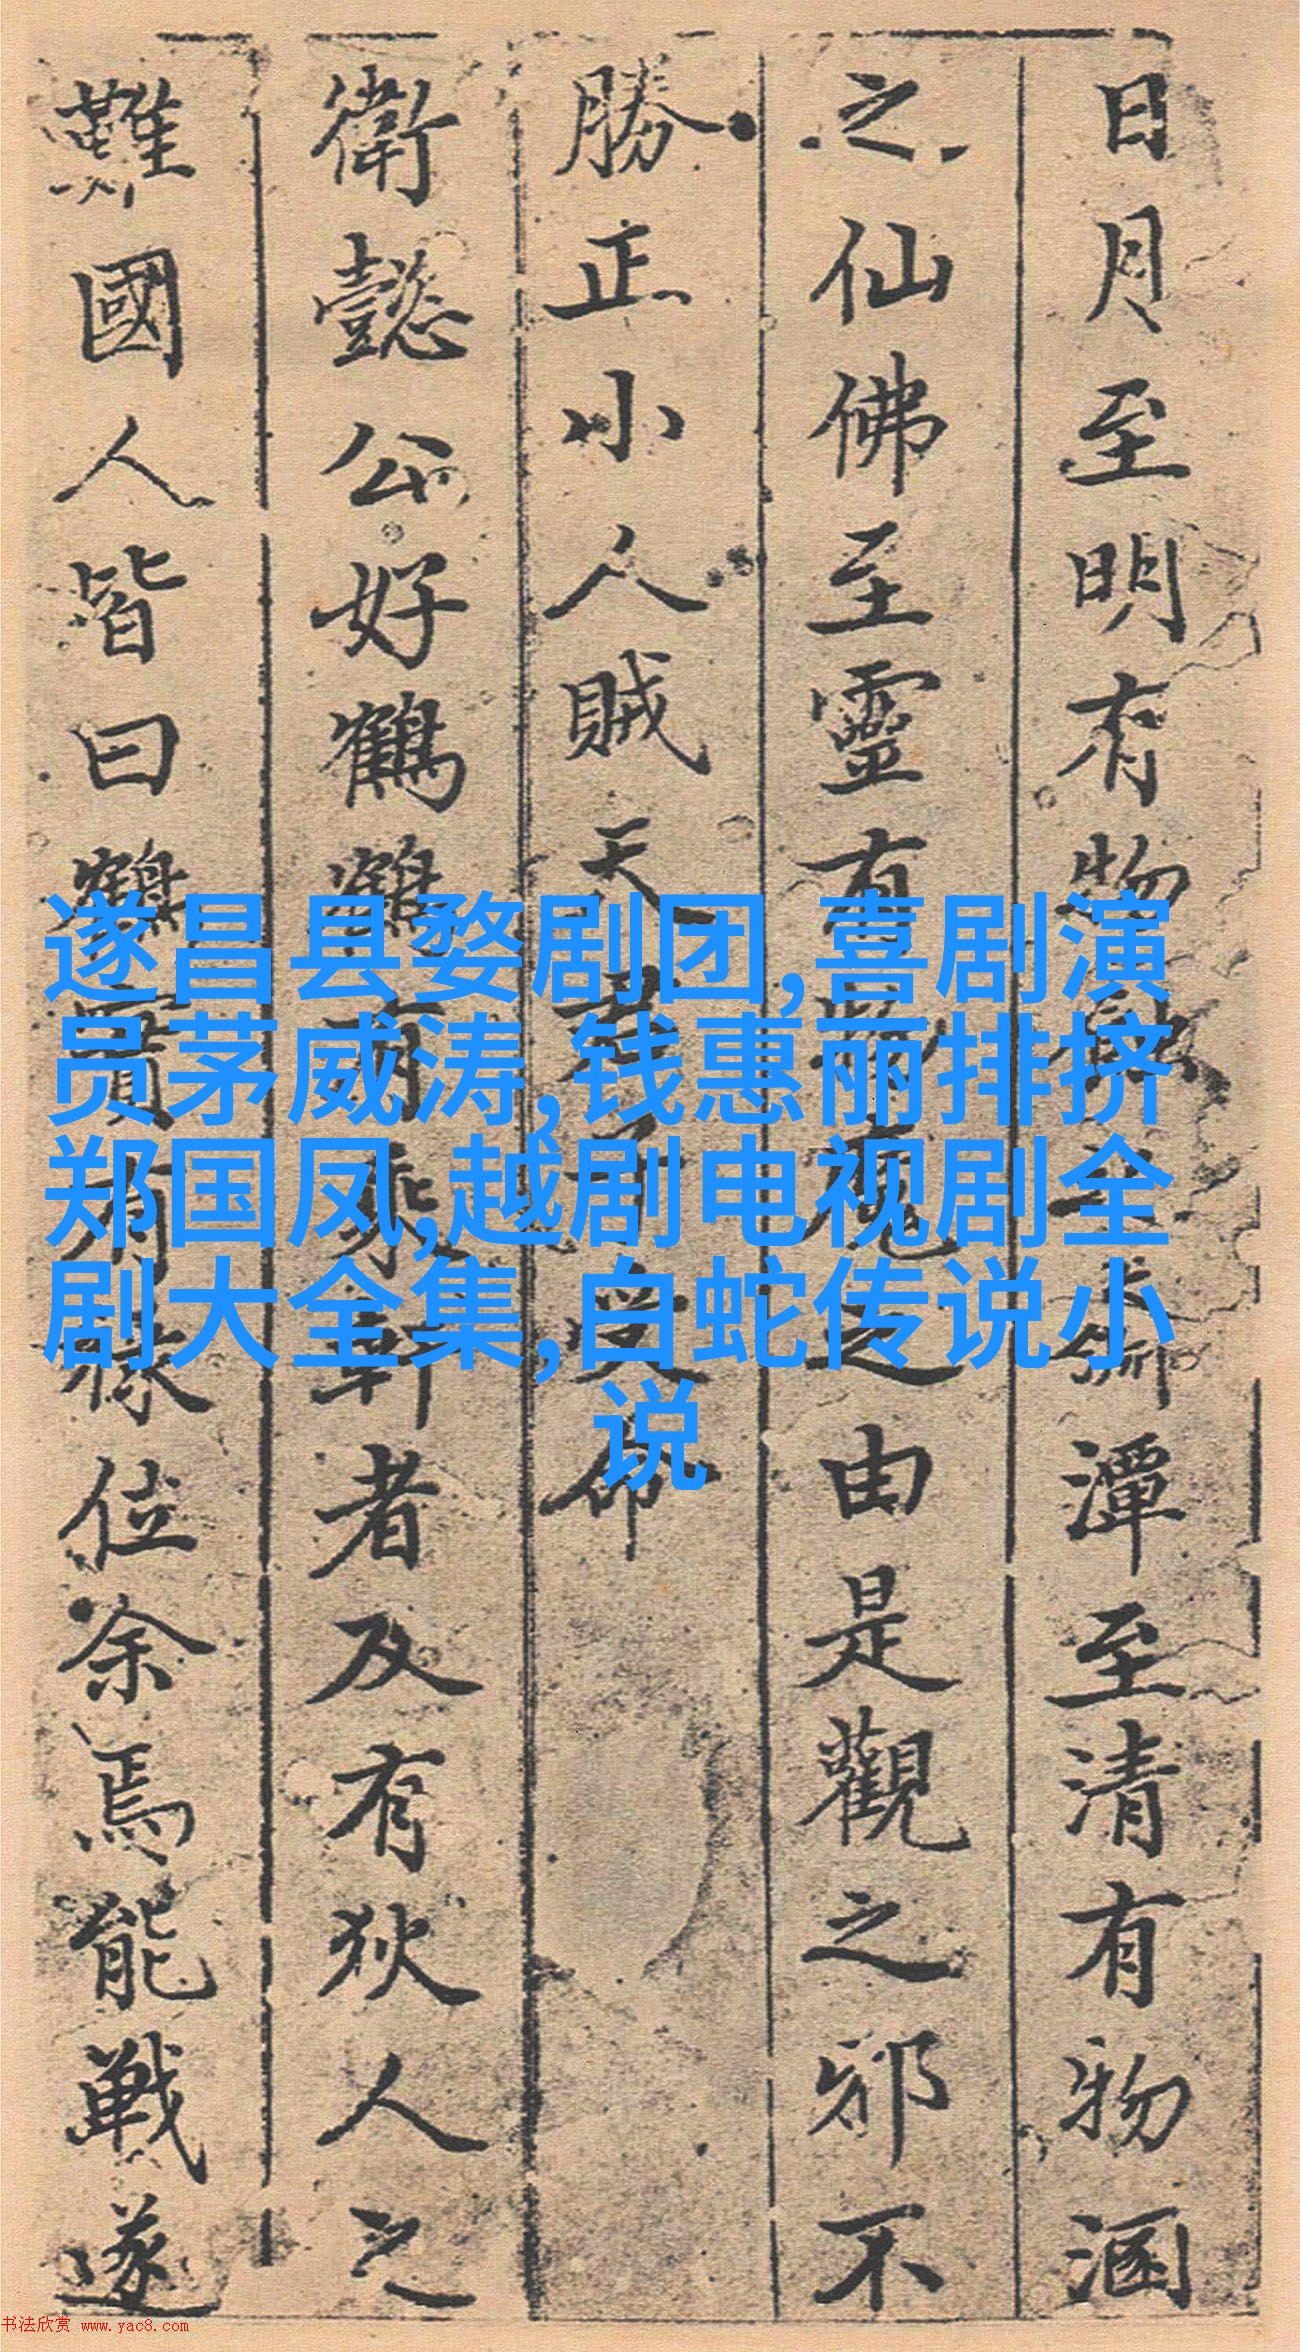 日月至明有物潭至清有物涵
之仙佛至靈有魔之由是觀之邪不
勝正小人賊天君受命
衛懿公好鶴鶴有乘軒者及有狄人之
難國人皆曰鶴實有祿位余焉能戰遂
遂昌县婺剧团,喜剧演
员茅威涛,钱惠丽排挤
郑国凤,越剧电视剧全
剧大全集,白蛇传说小
说
书法欣赏 www.yac8.com